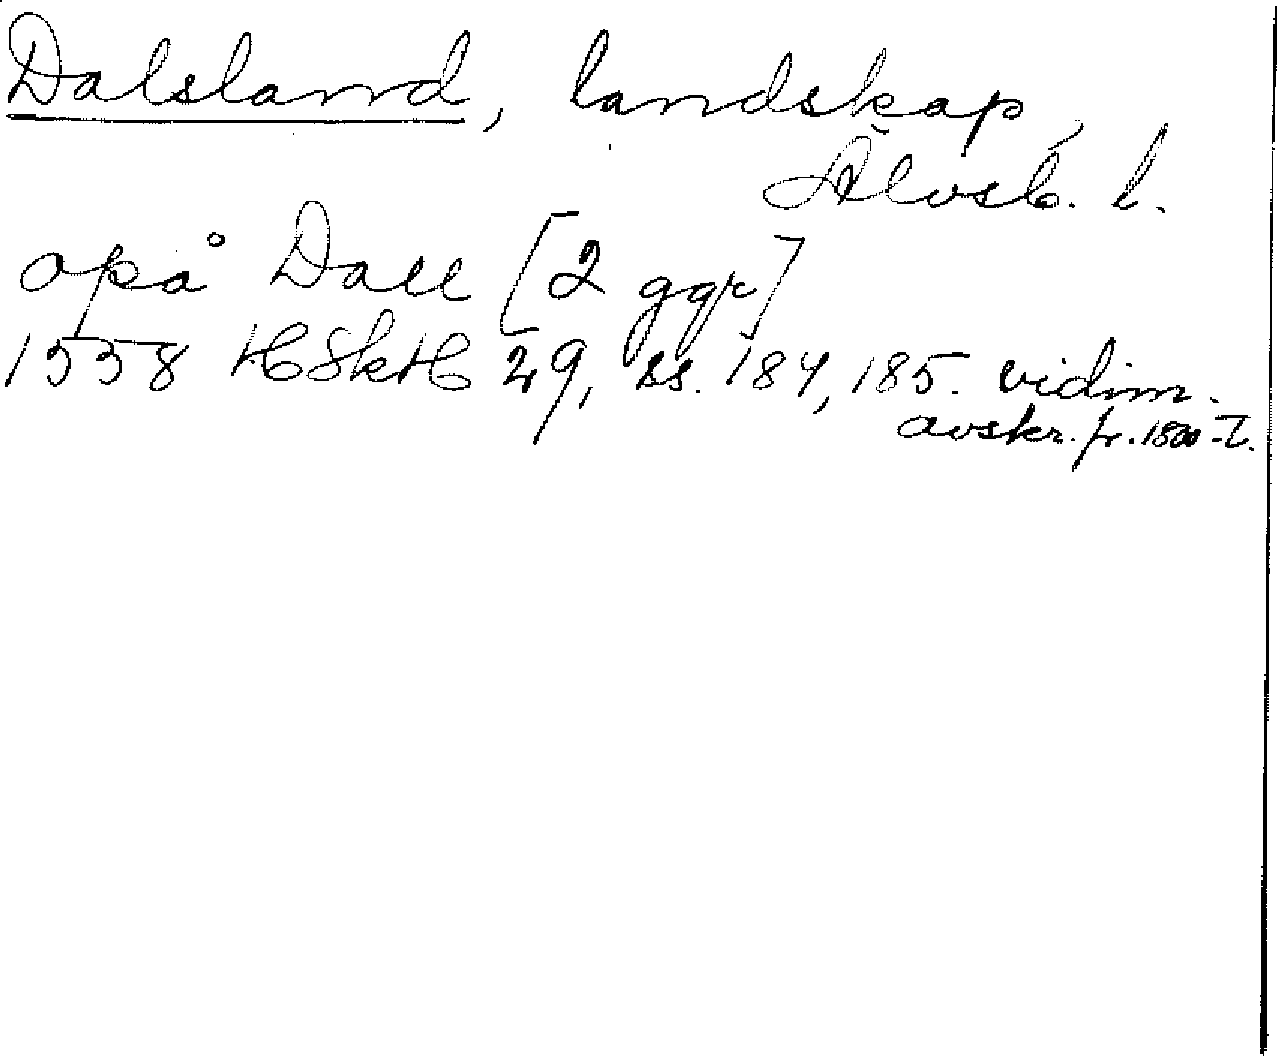 Dalsland, landskap,
Älvsb. l.
opå Dall [2 ggr]
1558 HSkH 29, ss. 184, 185. vidim.
avskr. fr. 1800-t.